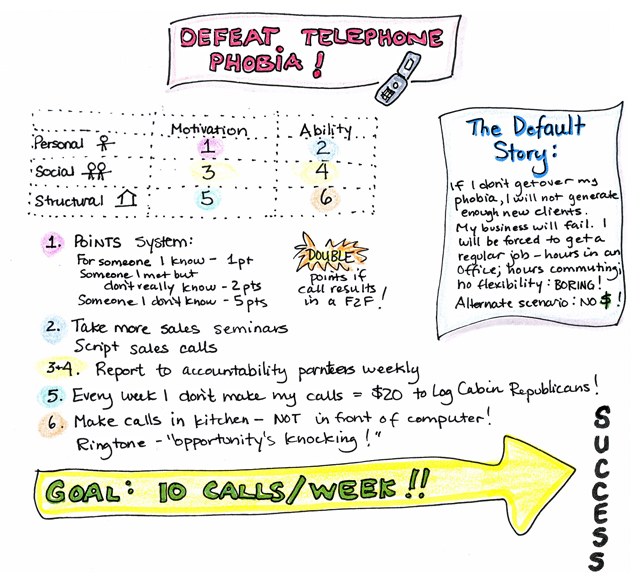 DEFEAT TELEPHONE
PHOBIA!
Motivation Ability
Personal 1 2
Social 3 4
Structural 5 6
The Default
Story:
If I don't get over my
phobia, I will not generate
enough new clients.
My business will fail. I
will be forced to get a
regular job - hours in an
office; hours commuting;
no flexibility: BORING!
Alternate scenario: NO $!
1. POINTS SYSTEM:
For someone I know - 1pt
Someone I met but
don't really know - 2pts
Someone I don't know - 5 pts
DOUBLE
points if
call results
in a F2F!
2. Take more sales seminars
Script sales calls
3+4. Report to accountability partners weekly
5. Every week I don't make my calls = $20 to Log Cabin Republicans!
6. Make calls in kitchen - NOT in front of computer!
Ringtone - "opportunity's knocking!"
GOAL: 10 CALLS/WEEK!!
SUCCESS